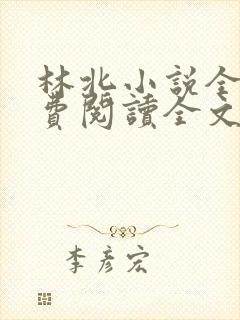 林北小說全
費閱讀全文
李彥宏